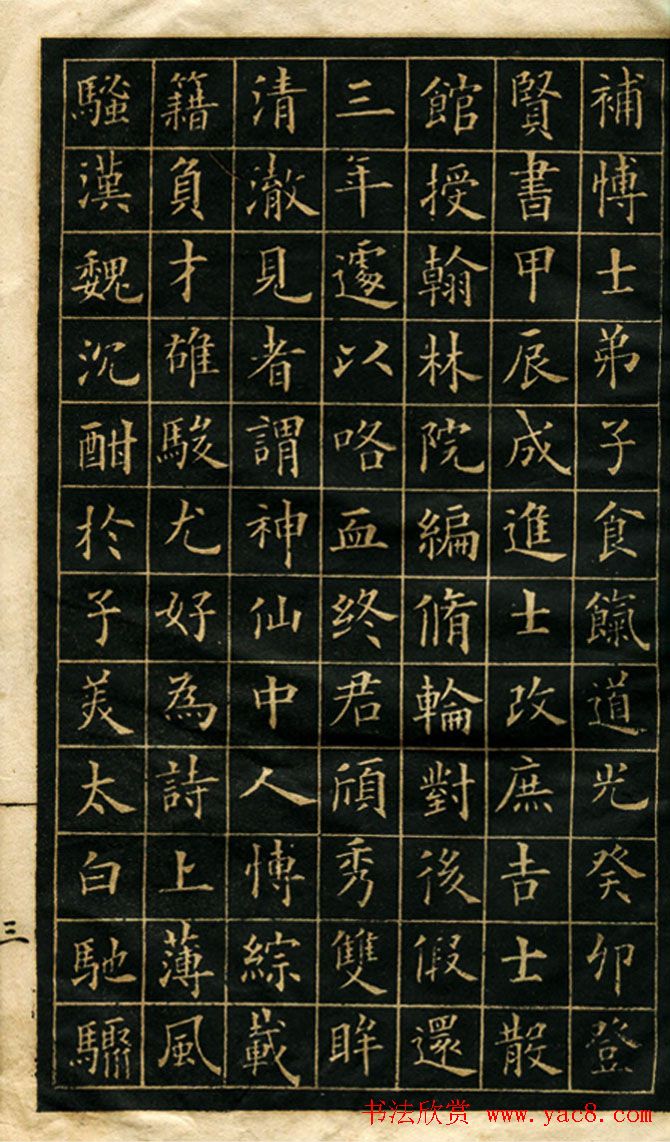 補愽士弟子食餼道光癸卯登
賢書甲辰成進士改庶吉士散
館授翰林院編脩輪對後假還
三年遽以咯血終君頎秀雙眸
清澈見者謂神仙中人愽綜載
籍負才雄駿尤好為詩上薄風
騷漢魏沉酣於子美太白馳驟
三
书法欣赏 www.yac8.com